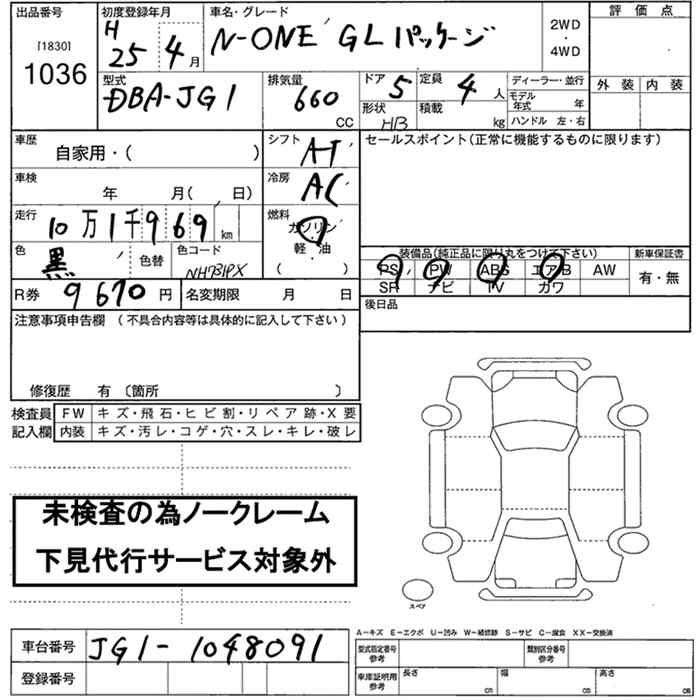 出品番号
[1830]
1036
初度登録年月
H
25 4月
車名・グレード
N-ONE GLパッケージ
2WD
・
4WD
評価点
外装 内装
型式
DBA-JG1
排気量
660
CC
ドア 5
形状 HB
定員 4人
積載 kg
ディーラー・並行
モデル年式 年
ハンドル 左・右
車歴
自家用・( )
シフト AT
セールスポイント(正常に機能するものに限ります)
車検
年 月( , 日)
冷房 AC
走行
10万1千969km
燃料
ガソリン
・
軽・油
( )
色
黒
色替
色コード
NH731PX
装備品(純正品に限り丸をつけて下さい)
PS PW ABS エアB AW
SR ナビ TV カワ
新車保証書
有・無
R券 9670円
名変期限 月 日
後日品
注意事項申告欄 (不具合内容等は具体的に記入して下さい)
修復歴 有〔箇所 〕
検査員記入欄
FW キズ・飛石・ヒビ割・リペア跡・X要
内装 キズ・汚レ・コゲ・穴・スレ・キレ・破レ
未検査の為ノークレーム
下見代行サービス対象外
スペア
A-キズ E-エクボ U-凹み W-補修跡 S-サビ C-腐食 XX-交換済
車台番号 JG1-1048091
登録番号
型式指定番号
参考
類別区分番号
参考
車庫証明用
参考
長さ cm
幅 cm
高さ cm